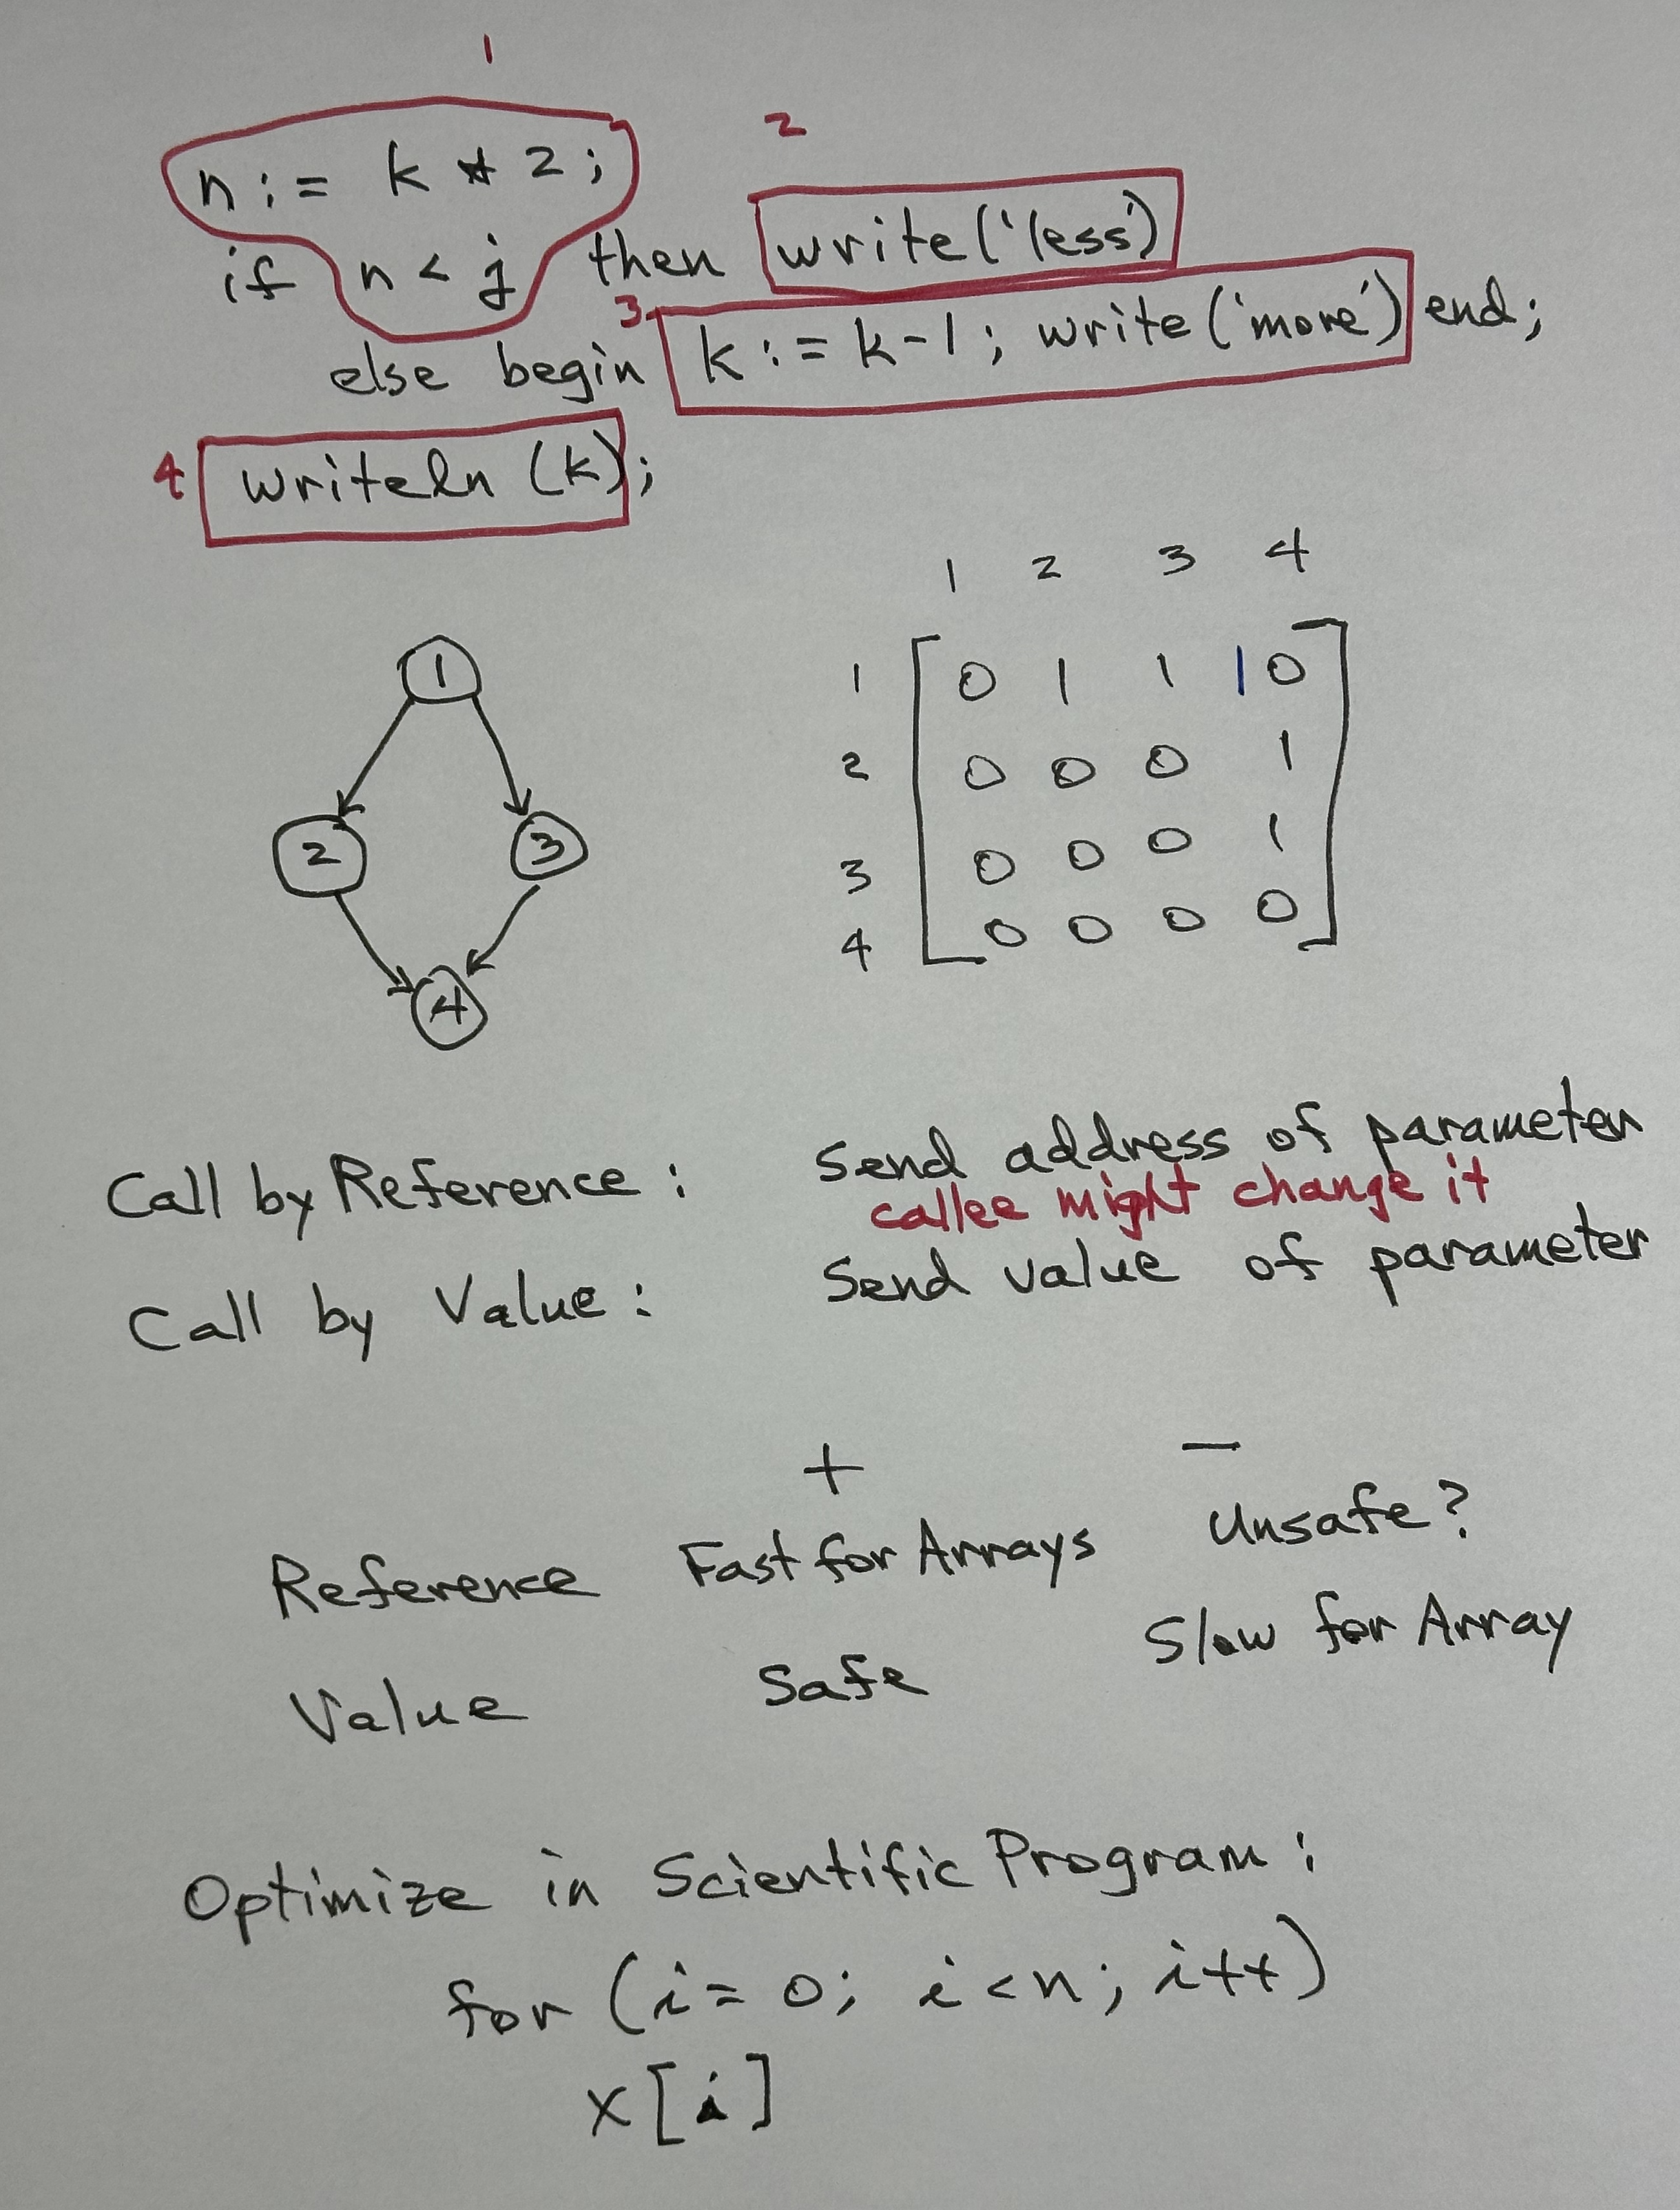 1
n := k * 2;
2
if n < j then write('less')
3
else begin k := k-1; write('more') end;
4 writeln (k);
1 2 3 4
1 0 1 1 | 0
2 0 0 0 1
3 0 0 0 1
4 0 0 0 0
1
2 3
4
Call by Reference: Send address of parameter
callee might change it
Call by Value: Send value of parameter
+ -
Reference Fast for Arrays Unsafe?
Value Safe Slow for Array
Optimize in Scientific Program:
for (i = 0; i < n; i++)
x[i]